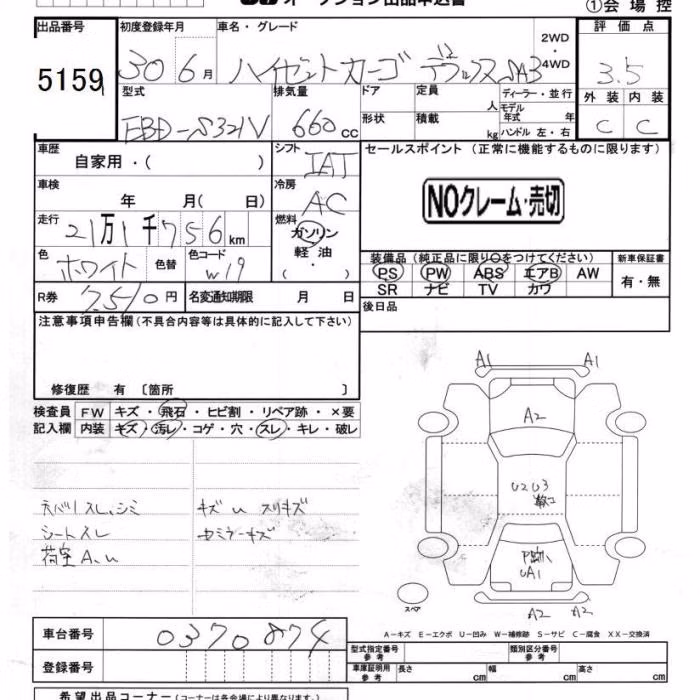 オークション出品申込書
①会場控
出品番号 初度登録年月 車名・グレード 評価点
5159 30 6月 ハイゼットカーゴ デラックスSA3 2WD 4WD 3.5
型式 排気量 ドア 定員 人 ディーラー・並行 外装 内装
EBD-S321V 660cc 形状 積載 kg モデル年式 年 ハンドル 左・右 C C
車歴 自家用・( ) シフト IAT セールスポイント(正常に機能するものに限ります)
車検 年 月( 日) 冷房 AC NOクレーム・売切
走行 21万1千756km 燃料 ガソリン 軽油 ( ・ )
色 ホワイト 色替 色コード W19 装備品(純正品に限り○をつけてください) 新車保証書
PS PW ABS エアB AW 有・無
SR ナビ TV カワ
R券 7,510円 名変通知期限 月 日 後日品
注意事項申告欄(不具合内容等は具体的に記入して下さい)
修復歴 有 〔箇所 〕
検査員 FW キズ・飛石・ヒビ割・リペア跡・×要
記入欄 内装 キズ・汚レ・コゲ・穴・スレ・キレ・破レ
A1 A1
A2
U2U3
UA1
A2 A2
スリキズ
シートスレ
荷室A、U
スペア
A-キズ E-エクボ U-凹み W-補修跡 S-サビ C-腐食 XX-交換済
車台番号 0370874 型式指定番号 参考 類別区分番号 参考
登録番号 車庫証明用 参考 長さ cm 幅 cm 高さ cm
希望出品コーナー(コーナーは各会場により異なります。)